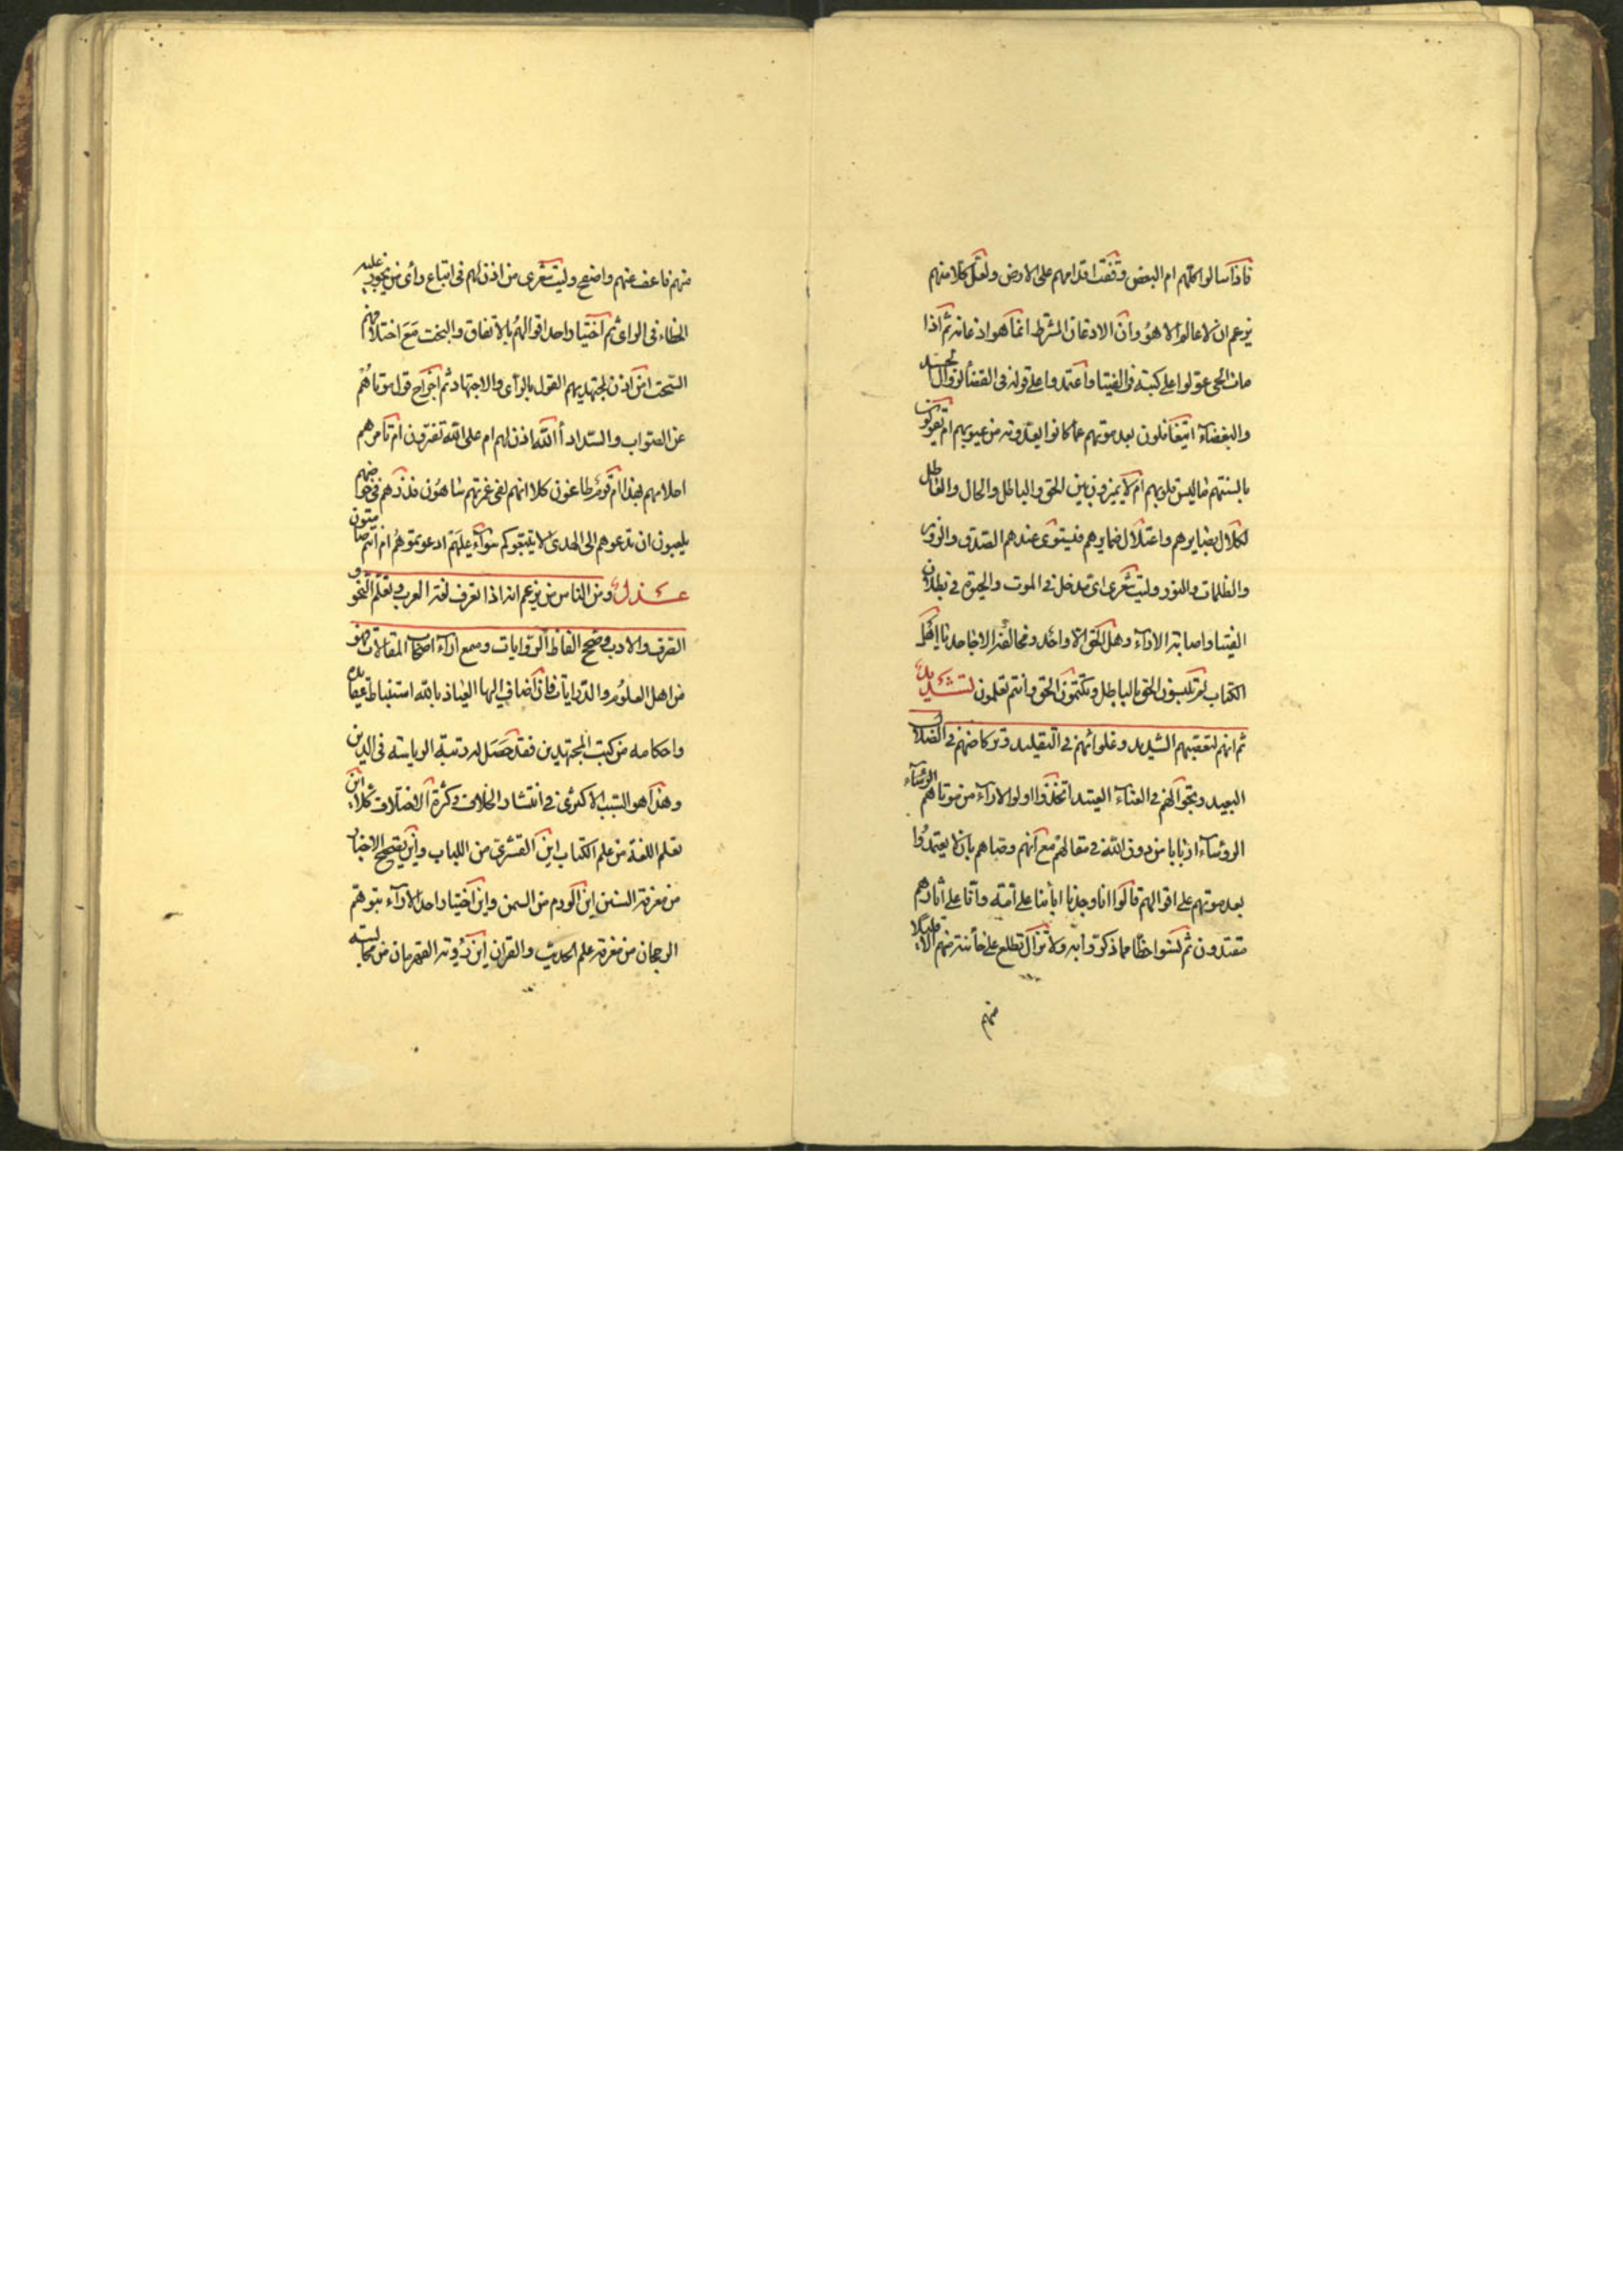 فاذا سالوا كلهم ام البعض وقفت اقدامهم على الارض ولعل كلا منهم
يزعم ان لا عالم الا هو وان الاذعان المشترط انما هو اذعانه ثم اذا
مات الحى عولوا على كتبه فى الفتيا واعتمدوا على قوله فى القضا الزوال الحسد
والبغضاء ايتغافلون بعد موتهم عما كانوا يعدونه من عيوبهم ام يقولون
بالسنتهم ما ليس فى قلوبهم ام لا يميزون بين الحق والباطل والحال والعاطل
لكلال بصايرهم واعتلال ضمايرهم فيستوى عندهم الصدق والزور
والظلمات والنور وليت شعرى اى مدخل فى الموت والحيوة فى بطلان
الفتيا واصابة الاراء وهل الحق الا واحد ومخالفه الا جاحد يا اهل
الكتاب لم تلبسون الحق بالباطل وتكتمون الحق وانتم تعلمون تشديد
ثم انهم لتعصبهم الشديد وغلوائهم فى التقليد وتركاضهم فى الضلال
البعيد وتجوالهم فى العناء العتيد اتخذوا اولو الاراء من موتاهم الرؤساء
الرؤساء اربابا من دون الله فى مقالهم مع انهم وصاهم بان لا يعتمدوا
بعد موتهم على اقوالهم قالوا انا وجدنا اباءنا على امة وانا على اثارهم
مقتدون ثم نسوا حظا مما ذكروا به ولا تزال تطلع على خائنة منهم الا قليلا
منهم
منهم فاعف عنهم واصفح وليت شعرى من اذن لهم فى اتباع راى من يجوز عليه
الخطاء فى الراى ثم اختيار احد اقوالهم بالاتفاق والبخت مع اختلافهم
البحت اين اذن لمجتهديهم القول بالراى والاجتهاد ثم اخراج قول موتاهم
عن الصواب والسداد أ الله اذن لهم ام على الله تفترون ام تامرهم
احلامهم بهذا ام قوم طاغون كلا انهم لفى غمرتهم ساهون فذرهم فى خوضهم
يلعبون ان تدعوهم الى الهدى لا يتبعوكم سواء عليهم ادعوتموهم ام انتم صامتون
عذل ومن الناس من يزعم انه اذا تعرف لغة العرب وتعلم النحو و
الصرف والادب وصحح الفاظ الروايات وسمع اراء اصحاب المقالات فهو
من اهل العلوم والدرايات فان اضاف اليها العياذ بالله استنباط عقايده
واحكامه من كتب المجتهدين فقد حصل له رتبة الرياسة فى الدين
وهذا هو السبب الاكبرى فى انتشار الخلاف وكثرة الاختلاف كلا اين
تعلم اللغة من علم الكتاب اين القشرى من اللباب واين تصحيح الاخبار
من معرفة السنن اين الورم من السمن واين اختيار احد الاراء بتوهم
الرجحان من معرفة علم الحديث والقران اين رؤية القهرمان من مجالسة